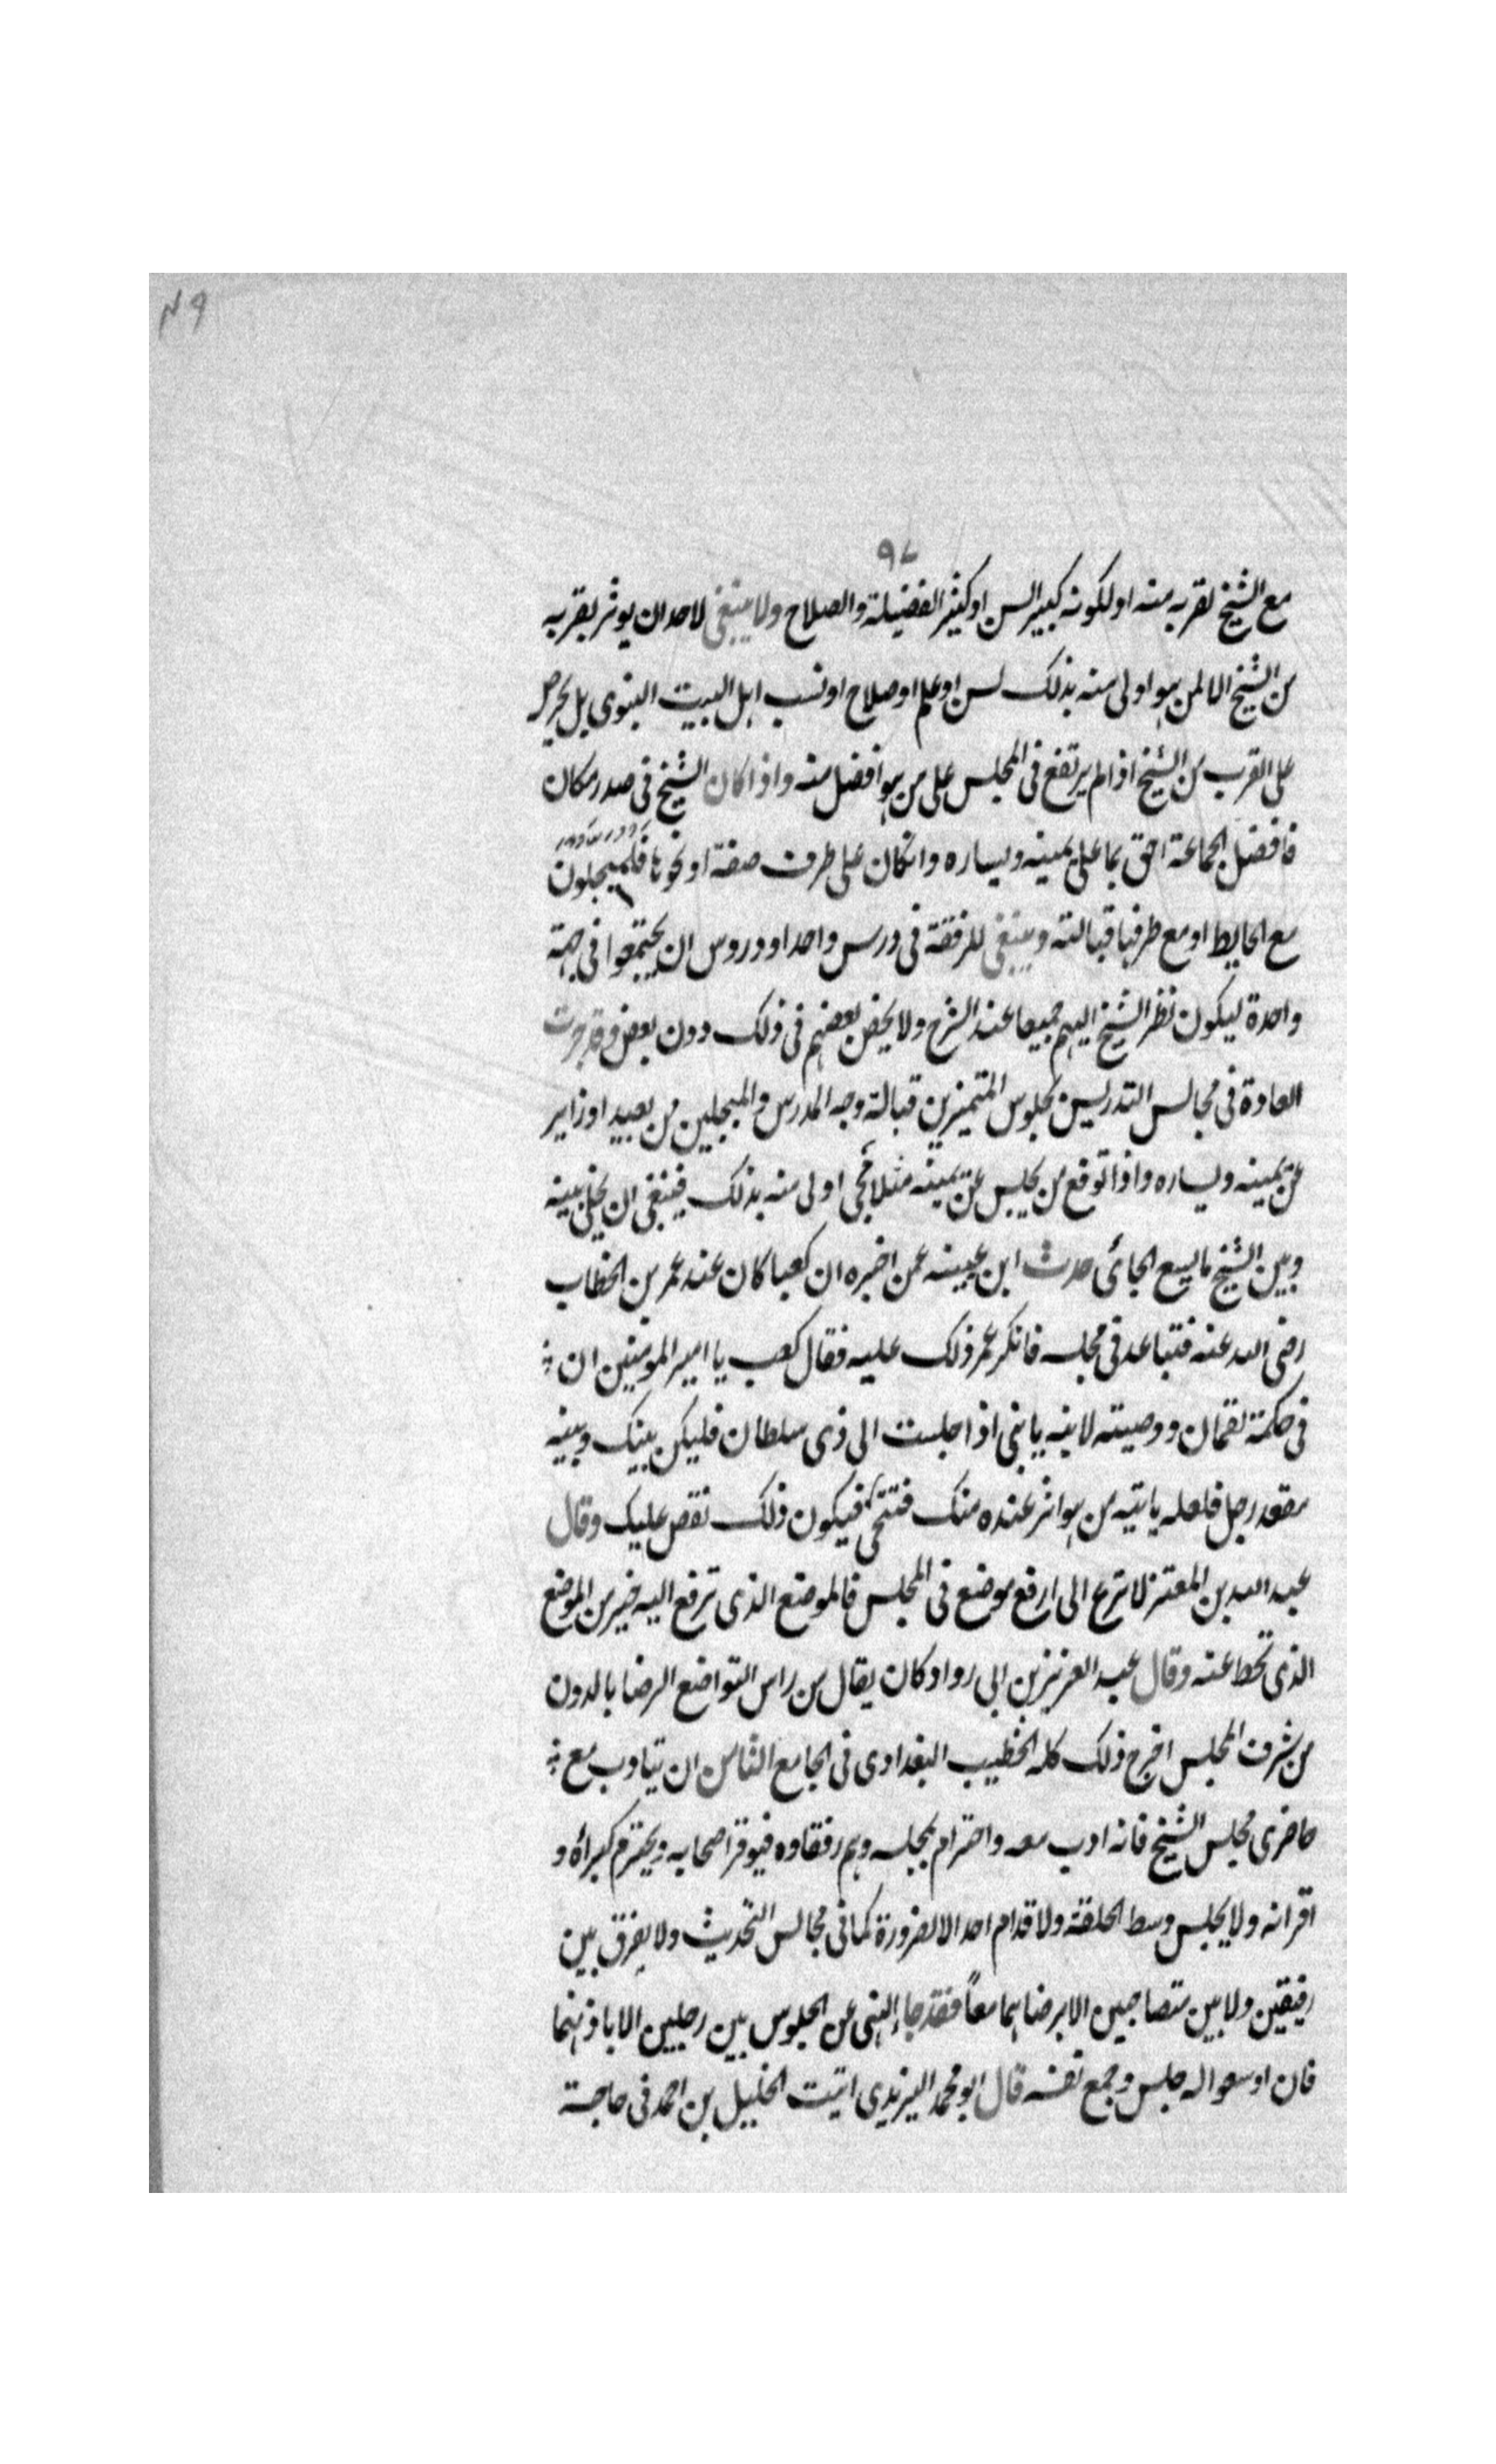 ٤٩
٩٧
مع الشيخ لقربه منه او لكونه كبير السن او كثير الفضيلة والصلاح ولا ينبغي لاحد ان يوثر بقربه
من الشيخ الا لمن هو اولى منه بذلك لسن او علم او صلاح او نسب اهل البيت النبوى بل يحرص
على القرب من الشيخ اذا لم يرتفع في المجلس على من هو افضل منه واذا كان الشيخ في صدر مكان
فافضل الجماعة احق بما على يمينه ويساره وانكان على طرف صفة او نحوها فالمبجلون
مع الحايط او مع طرفها قبالته وينبغي للرفقة في درس واحد او دروس ان يجتمعوا في جهة
واحدة ليكون نظر الشيخ اليهم جميعا عند الشرح ولا يخص بعضهم في ذلك دون بعض وقد جرت
العادة في مجالس التدريس بجلوس المتميزين قبالة وجه المدرس والمبجلين من بعيد او زاير
عن يمينه ويساره واذا توقع من يجلس عن يمينه مثلا مجى اولى منه بذلك فينبغي ان يخلى بينه
وبين الشيخ ما يسع الجائى حدث ابن عيينه عمن اخبره ان كعبا كان عند عمر بن الخطاب
رضى الله عنه فتباعد في مجلسه فانكر عمر ذلك عليه فقال كعب يا امير المومنين ان
في حكمة لقمان ووصيته لابنه يا بنى اذا جلست الى ذى سلطان فليكن بينك وبينه
مقعد رجل فلعله ياتيه من هو اثر عنده منك فتنحى فيكون ذلك نقص عليك وقال
عبد الله بن المعتز لا تسرع الى ارفع موضع في المجلس فالموضع الذى ترفع اليه خير من الموضع
الذى تحط عنه وقال عبد العزيز بن ابى رواد كان يقال من راس التواضع الرضا بالدون
من شرف المجلس اخرج ذلك كله الخطيب البغدادى في الجامع الثامن ان يتادب مع
حاضرى مجلس الشيخ فانه ادب معه واحترام بمجلسه وهم رفقاوه فيوقر اصحابه ويحترم كبراءه و
اقرانه ولا يجلس وسط الحلقة ولا قدام احد الا لضرورة كما في مجالس التحديث ولا يفرق بين
رفيقين ولا بين متصاحبين الا برضاهما معاً فقد جاء النهى عن الجلوس بين رجلين الا باذنهما
فان اوسعوا له جلس وجمع نفسه قال ابو محمد اليزيدى اتيت الخليل بن احمد في حاجة